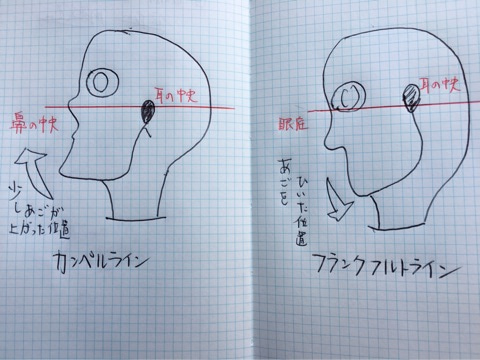 耳の中央
鼻の中央
少しあごが
上がった位置
カンペルライン
耳の中央
眼底
あごを
ひいた位置
フランクフルトライン